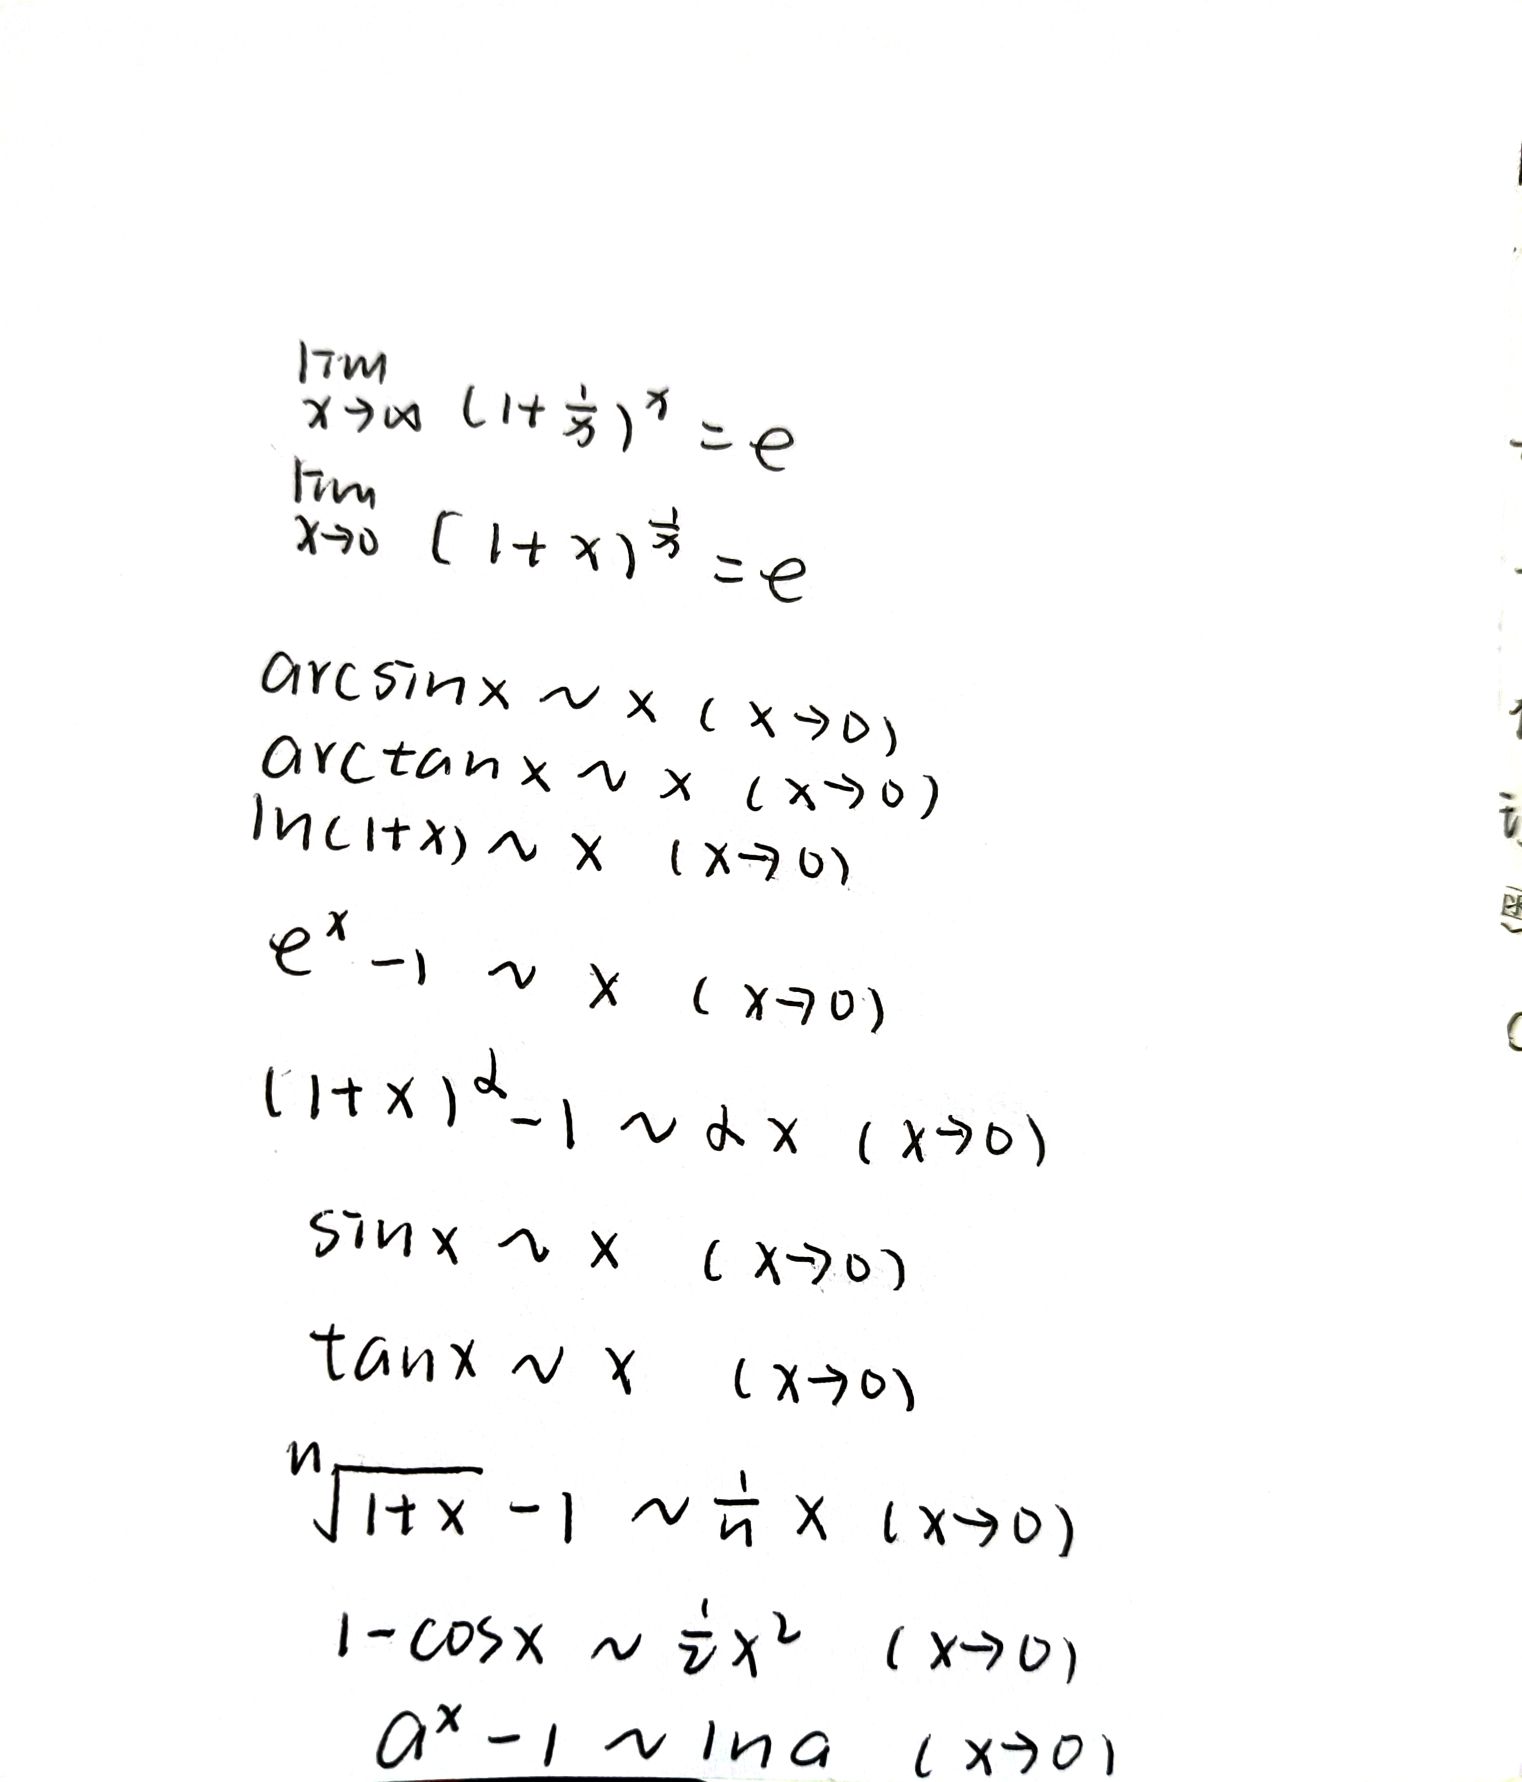 lim
x→∞ (1+1/x)^x = e
lim
x→0 (1+x)^(1/x) = e
arcsinx ~ x (x→0)
arctanx ~ x (x→0)
ln(1+x) ~ x (x→0)
e^x -1 ~ x (x→0)
(1+x)^α -1 ~ αx (x→0)
sinx ~ x (x→0)
tanx ~ x (x→0)
ⁿ√(1+x) -1 ~ 1/n x (x→0)
1-cosx ~ 1/2 x² (x→0)
a^x -1 ~ lna (x→0)